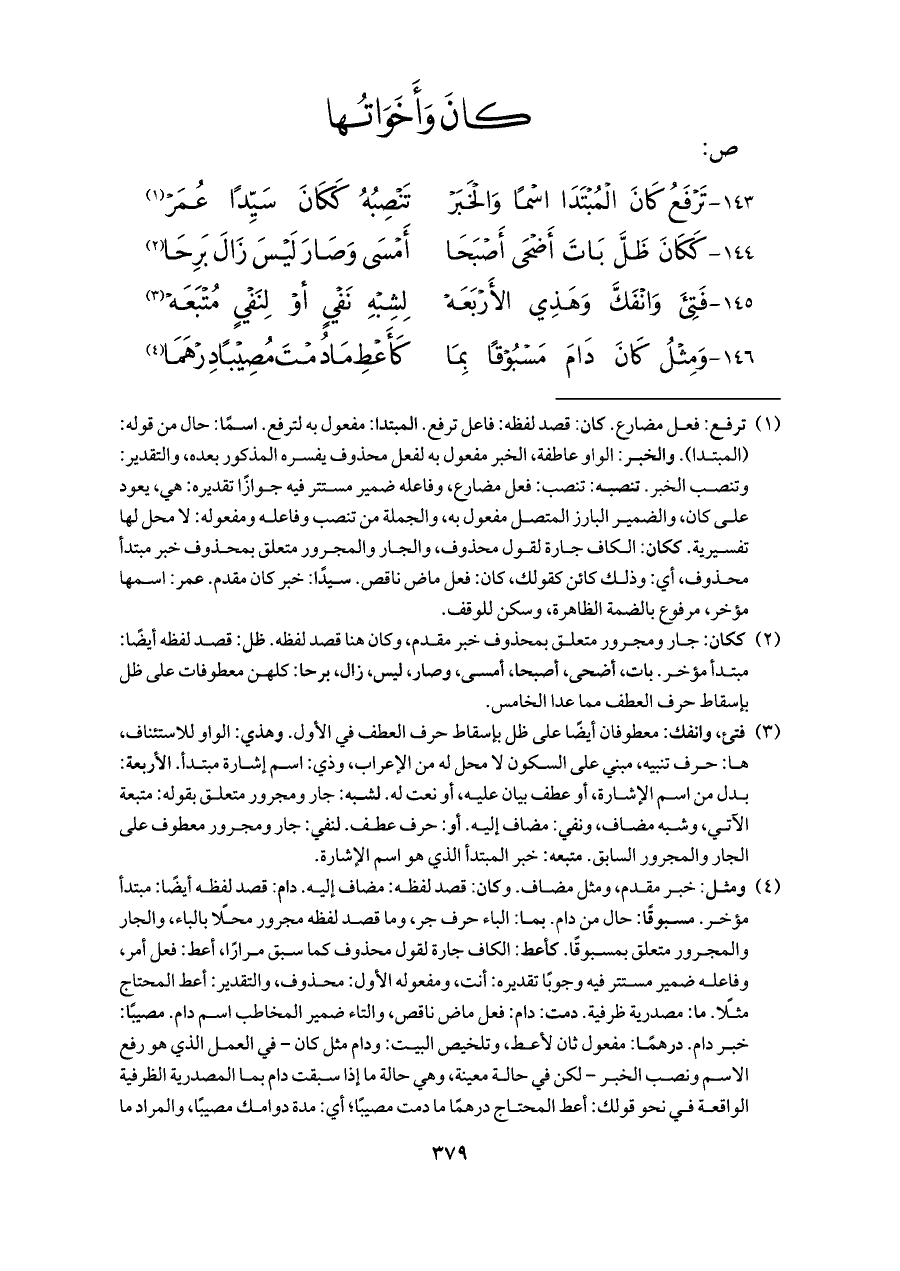 كَانَ وَأَخَوَاتُها
ص:
١٤٣- تَرْفَعُ كَانَ الْمُبْتَدَا اسْمًا وَالْخَبَرْ تَنْصِبُهُ كَكَانَ سَيِّدًا عُمَرْ(١)
١٤٤- كَكَانَ ظَلَّ بَاتَ أَضْحَى أَصْبَحَا أَمْسَى وَصَارَ لَيْسَ زَالَ بَرِحَا(٢)
١٤٥- فَتِئَ وَانْفَكَّ وَهَذِي الأَرْبَعَهْ لِشِبْهِ نَفْيٍ أوْ لِنَفْيٍ مُتْبَعَهْ(٣)
١٤٦- وَمِثْلُ كَانَ دَامَ مَسْبُوْقًا بِمَا كَأَعْطِ مَادُمْتَ مُصِيْبًا دِرْهَمَا(٤)
(١) ترفع: فعل مضارع. كان: قصد لفظه: فاعل ترفع. المبتدا: مفعول به لترفع. اسمًا: حال من قوله:
(المبتدا). والخبر: الواو عاطفة، الخبر مفعول به لفعل محذوف يفسره المذكور بعده، والتقدير:
وتنصب الخبر. تنصبه: تنصب: فعل مضارع، وفاعله ضمير مستتر فيه جوازًا تقديره: هي، يعود
على كان، والضمير البارز المتصل مفعول به، والجملة من تنصب وفاعله ومفعوله: لا محل لها
تفسيرية. ككان: الكاف جارة لقول محذوف، والجار والمجرور متعلق بمحذوف خبر مبتدأ
محذوف، أي: وذلك كائن كقولك، كان: فعل ماض ناقص. سيدًا: خبر كان مقدم. عمر: اسمها
مؤخر، مرفوع بالضمة الظاهرة، وسكن للوقف.
(٢) ككان: جار ومجرور متعلق بمحذوف خبر مقدم، وكان هنا قصد لفظه. ظل: قصد لفظه أيضًا:
مبتدأ مؤخر. بات، أضحى، أصبحا، أمسى، وصار، ليس، زال، برحا: كلهن معطوفات على ظل
بإسقاط حرف العطف مما عدا الخامس.
(٣) فتئ، وانفك: معطوفان أيضًا على ظل بإسقاط حرف العطف في الأول. وهذي: الواو للاستئناف،
ها: حرف تنبيه، مبني على السكون لا محل له من الإعراب، وذي: اسم إشارة مبتدأ. الأربعة:
بدل من اسم الإشارة، أو عطف بيان عليه، أو نعت له. لشبه: جار ومجرور متعلق بقوله: متبعة
الآتي، وشبه مضاف، ونفي: مضاف إليه. أو: حرف عطف. لنفي: جار ومجرور معطوف على
الجار والمجرور السابق. متبعه: خبر المبتدأ الذي هو اسم الإشارة.
(٤) ومثل: خبر مقدم، ومثل مضاف. وكان: قصد لفظه: مضاف إليه. دام: قصد لفظه أيضًا: مبتدأ
مؤخر. مسبوقًا: حال من دام. بما: الباء حرف جر، وما قصد لفظه مجرور محلًا بالباء، والجار
والمجرور متعلق بمسبوقًا. كأعط: الكاف جارة لقول محذوف كما سبق مرارًا، أعط: فعل أمر،
وفاعله ضمير مستتر فيه وجوبًا تقديره: أنت، ومفعوله الأول: محذوف، والتقدير: أعط المحتاج
مثلًا. ما: مصدرية ظرفية. دمت: دام: فعل ماض ناقص، والتاء ضمير المخاطب اسم دام. مصيبًا:
خبر دام. درهمًا: مفعول ثان لأعط، وتلخيص البيت: ودام مثل كان – في العمل الذي هو رفع
الاسم ونصب الخبر – لكن في حالة معينة، وهي حالة ما إذا سبقت دام بما المصدرية الظرفية
الواقعة في نحو قولك: أعط المحتاج درهمًا ما دمت مصيبًا؛ أي: مدة دوامك مصيبًا، والمراد ما
٣٧٩